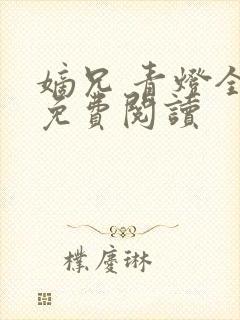 嫡兄 青燈全
免費閱讀
樸慶琳